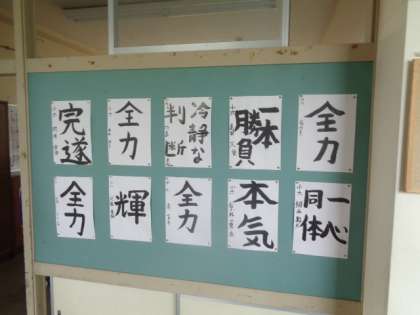 全力
一本
勝負
冷静な
判断
全力
完遂
一心
同体
本気
全力
輝
全力